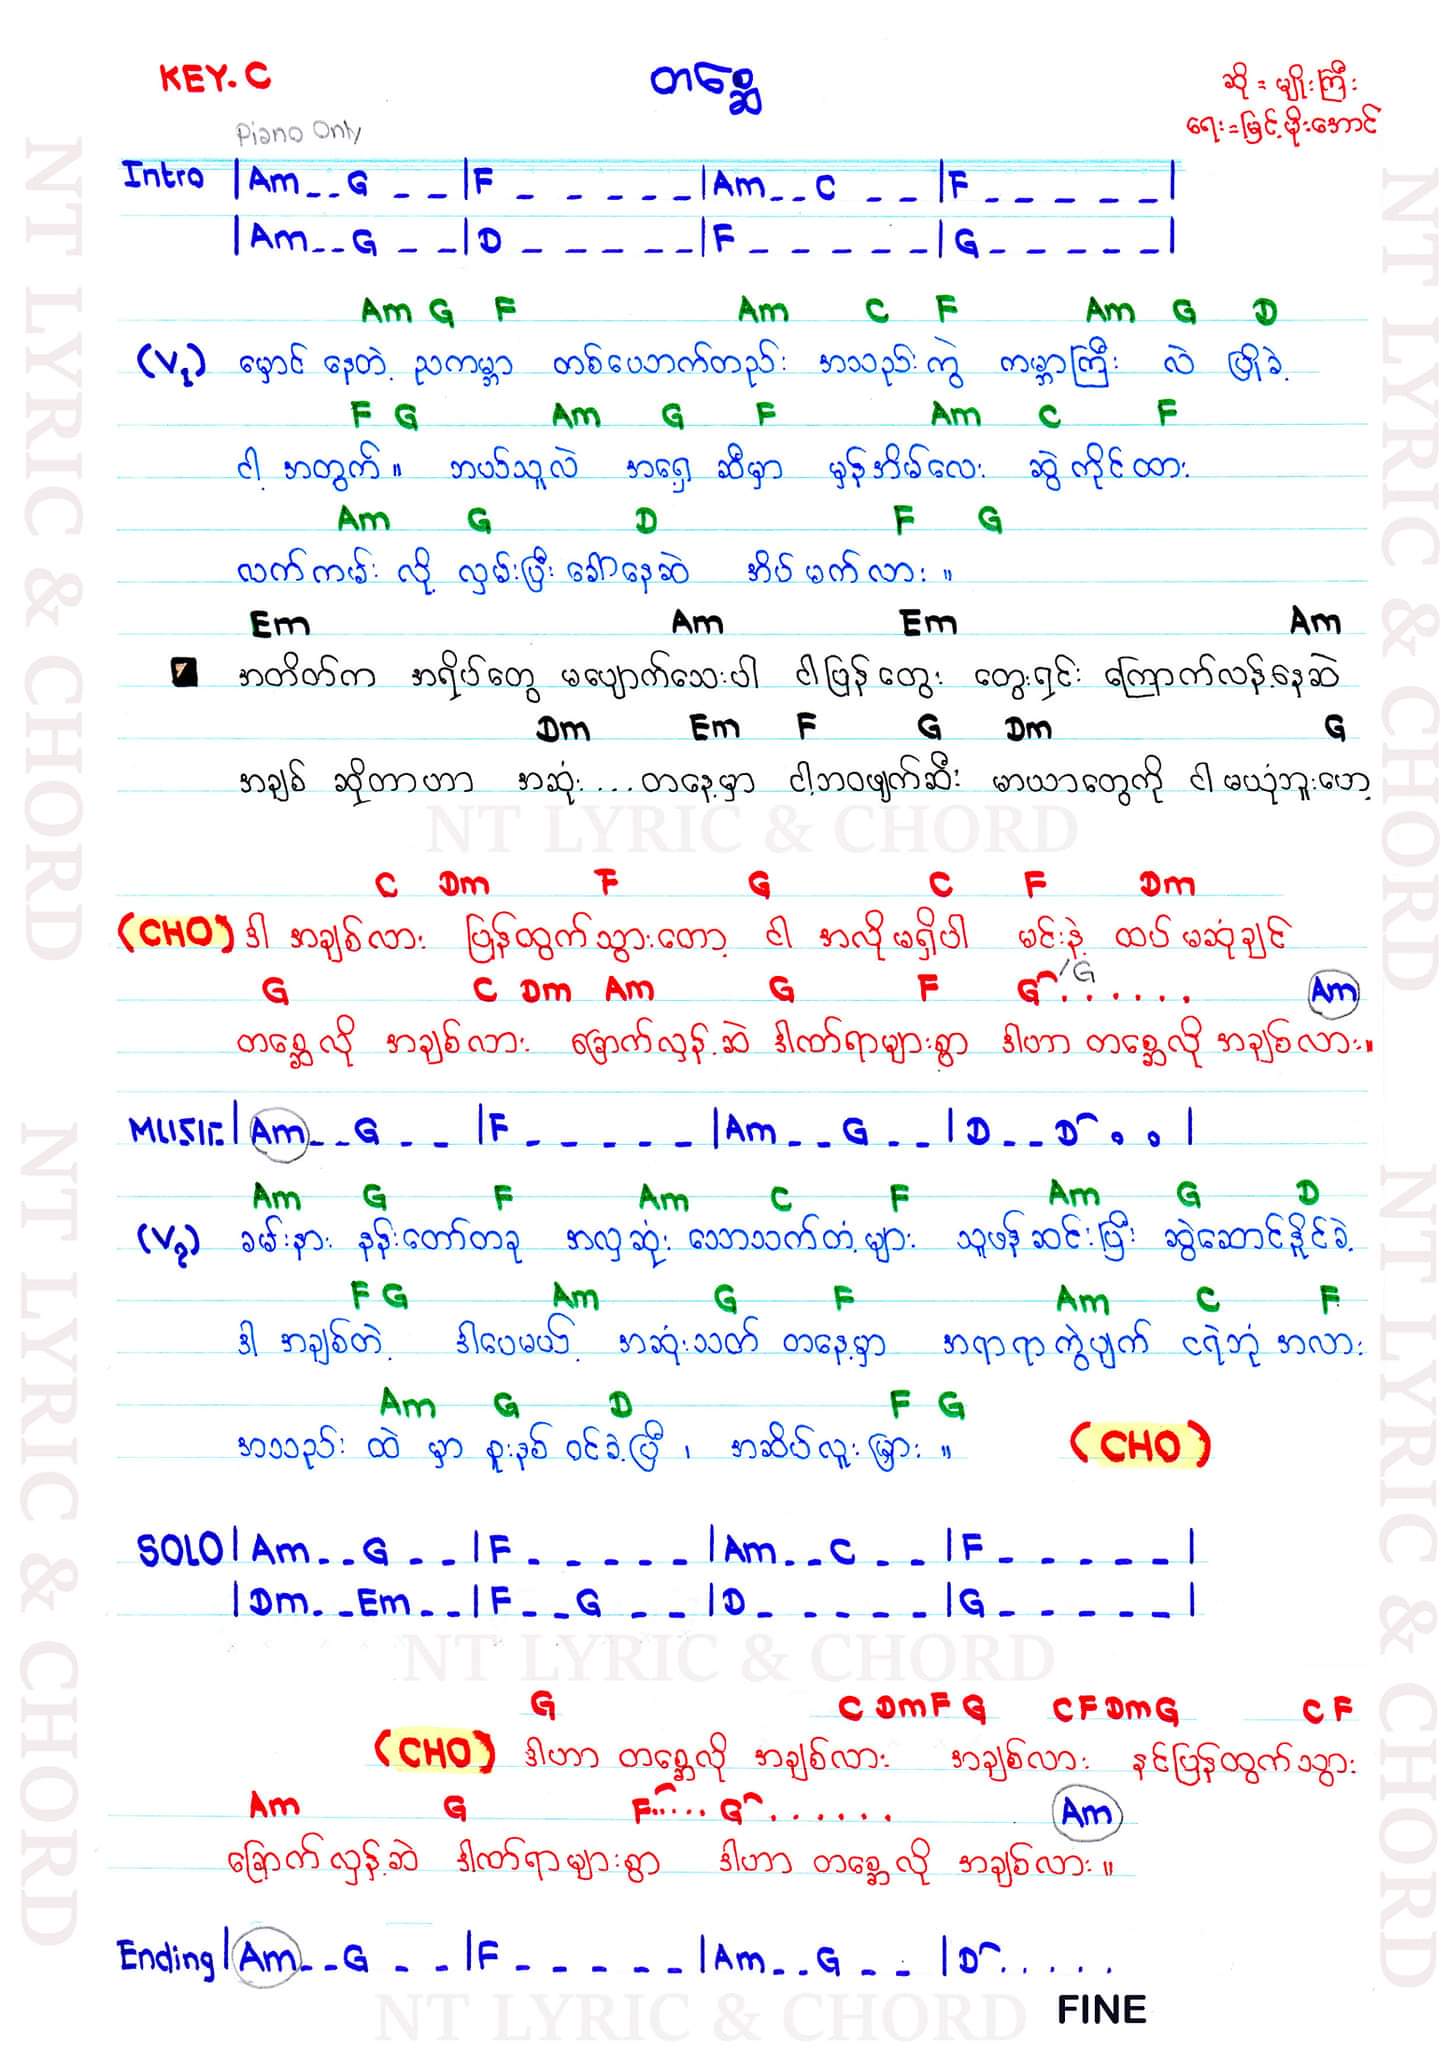 KEY. C
တစ္ဆေ
ဆို = မျိုးကြီး
ရေး = မြင့်မိုးအောင်
Piano Only
Intro |Am _ _ G _ _ |F _ _ _ _ _ |Am _ _ C _ _ |F _ _ _ _ _ |
|Am _ _ G _ _ |D _ _ _ _ _ |F _ _ _ _ _ |G _ _ _ _ _ |
Am G F Am C F Am G D
(V1) မှောင် နေတဲ့ ညကမ္ဘာ တစ်ပေဘက်တည်း အသည်းကွဲ ကမ္ဘာကြီး လဲ ပြိုခဲ့
F G Am G F Am C F
ငါ့ အတွက်။ ဘယ်သူလဲ အရှေ့ ဆီမှာ မှန်အိမ်လေး ဆွဲ ကိုင်ထား
Am G D F G
လက်ကမ်း လို့ လှမ်းပြီး ခေါ်နေဆဲ အိပ်မက်လား ။
Em Am Em Am
အတိတ်က အရိပ်တွေ မပျောက်သေးပါ ငါပြန်တွေး တွေးရင်း ကြောက်လန့်နေဆဲ
Dm Em F G Dm G
အချစ် ဆိုတာဟာ အဆုံး...တနေ့မှာ ငါ့ဘဝဖျက်ဆီး မာယာတွေကို ငါ မယုံဘူးဟေ့
NT LYRIC & CHORD
C Dm F G C F Dm
(CHO) ဒါ အချစ်လား ပြန်ထွက်သွားတော့ ငါ အလိုမရှိပါ မင်းနဲ့ ထပ် မဆုံချင်
G C Dm Am G F G /G . . . . . . Am
တစ္ဆေလို အချစ်လား ခြောက်လှန့်ဆဲ ဒါဏ်ရာများစွာ ဒါဟာ တစ္ဆေလို အချစ်လား။
MUSIC |Am _ _ G _ _ |F _ _ _ _ _ |Am _ _ G _ _ |D _ _ D . . |
Am G F Am C F Am G D
(V2) ခမ်းနား နန်းတော်တခု အလှဆုံး သောသက်တံ့များ သူဖန်ဆင်းပြီး ဆွဲဆောင်နိုင်ခဲ့
F G Am G F Am C F
ဒါ အချစ်တဲ့ ဒါပေမယ့် အဆုံးသတ် တနေ့မှာ အရာရာကွဲပျက် ငရဲဘုံ အလား
Am G D F G
အသည်း ထဲ မှာ စူးနစ် ဝင်ခဲ့ပြီ ၊ အဆိပ်လူးမြှား ။ (CHO)
SOLO |Am _ _ G _ _ |F _ _ _ _ _ |Am _ _ C _ _ |F _ _ _ _ _ |
|Dm _ _ Em _ _ |F _ _ G _ _ |D _ _ _ _ _ |G _ _ _ _ _ |
NT LYRIC & CHORD
G C Dm F G C F Dm G C F
(CHO) ဒါဟာ တစ္ဆေလို အချစ်လား အချစ်လား နင်ပြန်ထွက်သွား
Am G F . . . . . G . . . . . . Am
ခြောက်လှန့်ဆဲ ဒါဏ်ရာများစွာ ဒါဟာ တစ္ဆေလို အချစ်လား ။
Ending |Am _ _ G _ _ |F _ _ _ _ _ |Am _ _ G _ _ |D . . . . .
FINE
NT LYRIC & CHORD
NT LYRIC & CHORD
NT LYRIC & CHORD
NT LYRIC & CHORD
NT LYRIC & CHORD